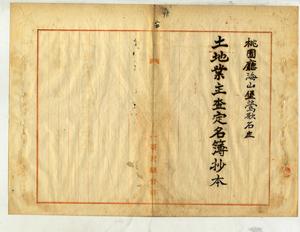 桃園廳海山堡鶯歌石庄
土地業主查定名簿抄本